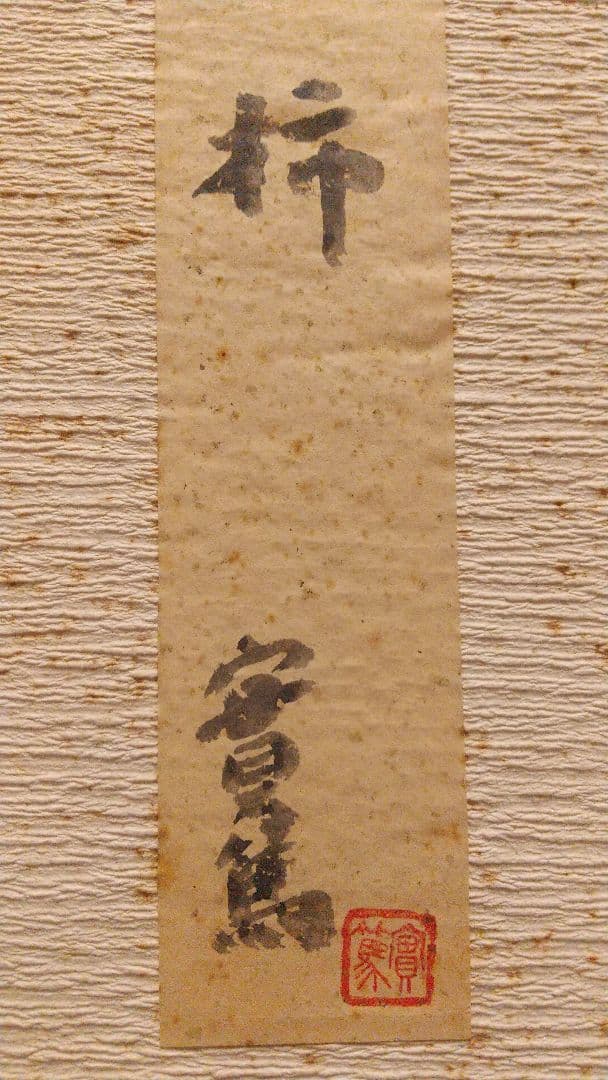 柿
實篤
實篤